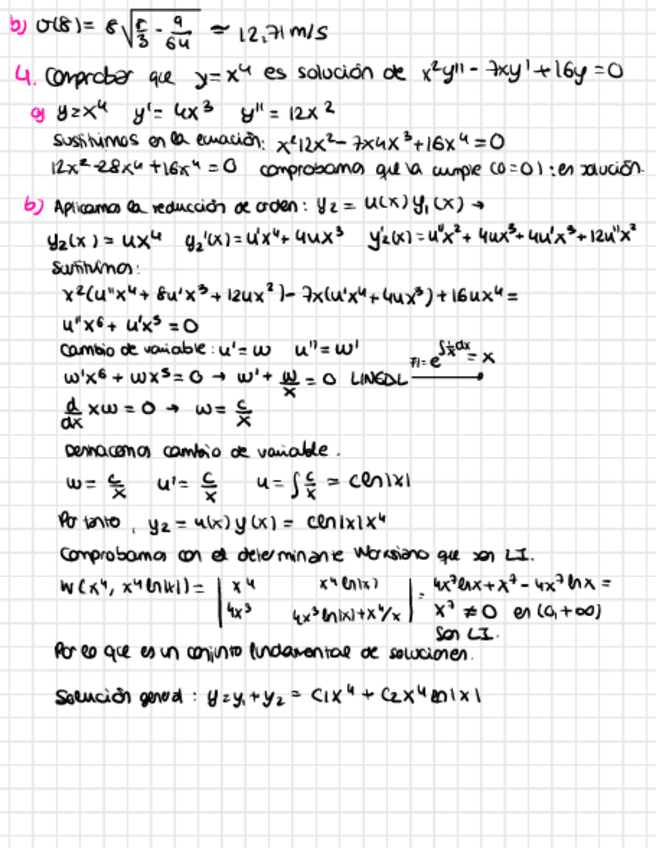 b) v(8) = 8√(5/3 - 9/64) ≃ 12,71 m/s
4. Comprobar que y=x⁴ es solución de x²y'' - 7xy' + 16y = 0
a) y=x⁴ y' = 4x³ y'' = 12x²
Sustituimos en la ecuación: x²12x² - 7x4x³ + 16x⁴ = 0
12x² - 28x⁴ + 16x⁴ = 0 comprobamos que la cumple (0=0) : es solución.
b) Aplicamos la reducción de orden : y₂ = u(x) y₁(x) →
y₂(x) = ux⁴ y₂'(x) = u'x⁴ + 4ux³ y₂''(x) = u''x² + 4ux³ + 4u'x³ + 12u''x²
Sustituimos:
x²(u''x⁴ + 8u'x³ + 12ux²) - 7x(u'x⁴ + 4ux³) + 16ux⁴ =
u''x⁶ + u'x⁵ = 0
Cambio de variable : u' = w u'' = w'
w'x⁶ + wx⁵ = 0 → w' + w/x = 0 LINEAL → FI = e^∫(1/x)dx = x
d/dx xw = 0 → w = c/x
Deshacemos cambio de variable.
w = c/x u' = c/x u = ∫ c/x = c ln|x|
Por tanto, y₂ = u(x) y(x) = c ln|x| x⁴
Comprobamos con el determinante Wronskiano que son LI.
W(x⁴, x⁴ ln|x|) = | x⁴ x⁴ ln|x| | = 4x⁷ lnx + x⁷ - 4x⁷ lnx =
| 4x³ 4x³ ln|x| + x⁴/x | x⁷ ≠ 0 en (0, +∞)
Son LI.
Por lo que es un conjunto fundamental de soluciones.
Solución general : y = y₁ + y₂ = c1x⁴ + c2x⁴ ln|x|